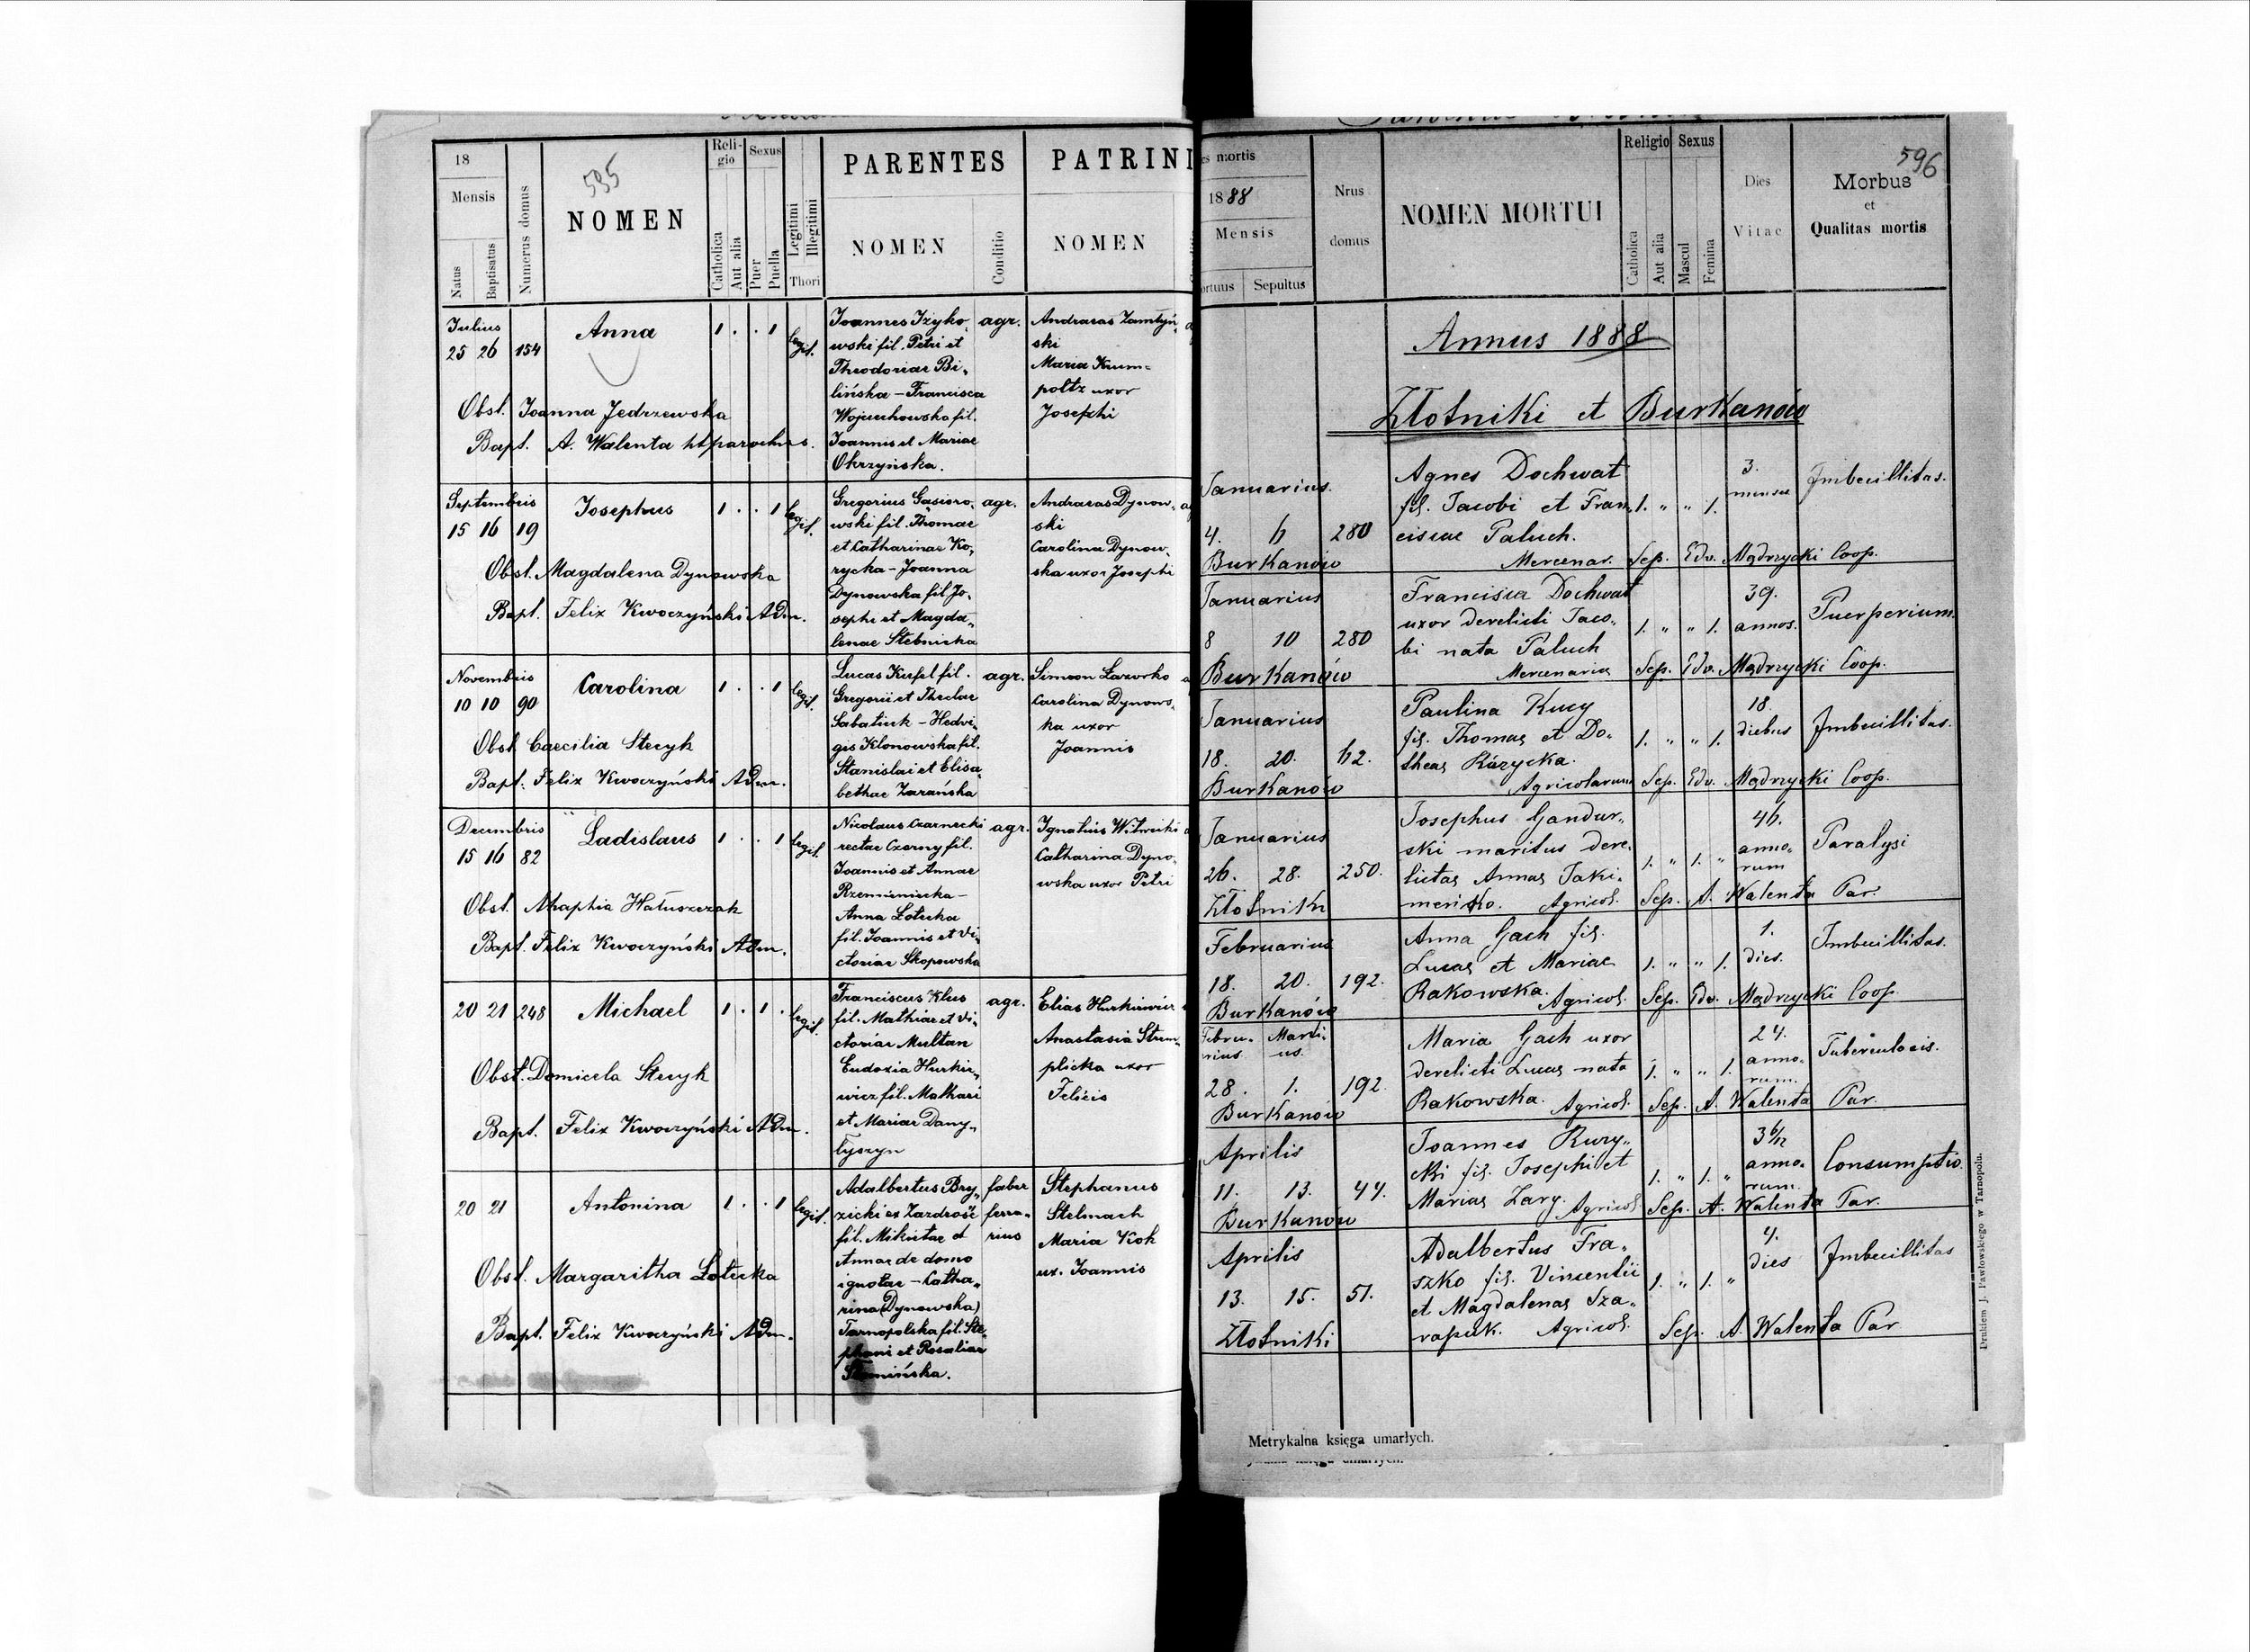 535
18
Mensis
Natus
Baptisatus
Numerus domus
NOMEN
Reli-
gio
Catholica
Aut alia
Sexus
Puer
Puella
Legitimi
Illegitimi
Thori
PARENTES
NOMEN
Conditio
PATRINI
NOMEN
Julius
25 26 154
Anna
1 . . 1 legit.
Joannes Izyko-
wski fil. Petri et
Theodoriae Bi-
lińska – Francisca
Wojciechowska fil.
Joannis et Mariae
Okrzyńska.
agr.
Andraeas Zamłyń-
ski
Maria Krum-
poltz uxor
Josephi
Obst. Joanna Jedrzewska
Bapt. A. Walenta ltparochus.
Septembris
15 16 19
Josephus
1 . . 1 legit.
Gregorius Gąsioro-
wski fil. Thomae
et Catharinae Ko-
rycka – Joanna
Dynowska fil. Jo-
sephi et Magda-
lenae Stebnicka
agr.
Andraeas Dynow-
ski
Carolina Dynow-
ska uxor Josephi
Obst. Magdalena Dynowska
Bapt. Felix Kwoczyński Adm.
Novembris
10 10 90
Carolina
1 . . 1 legit.
Lucas Kufel fil.
Gregorii et Theclae
Sabatiuk – Hedvi-
gis Klonowska fil.
Stanislai et Elisa-
bethae Zarańska
agr.
Simeon Ławorko
Carolina Dynows-
ka uxor
Joannis
Obst. Caecilia Stecyk
Bapt. Felix Kwoczyński Adm.
Decembris
15 16 82
Ladislaus
1 . . 1 legit.
Nicolaus Czarnecki
recte Czerny fil.
Joannis et Annae
Rzemieniecka –
Anna Łotecka
fil. Joannis et Vi-
ctoriae Skopowska
agr.
Ignatius Witwicki
Catharina Dyno-
wska uxor Petri
Obst. Ahaphia Hałuszczak
Bapt. Felix Kwoczyński Adm.
20 21 248
Michael
1 . 1 . legit.
Franciscus Klus
fil. Mathiae et Vi-
ctoriae Multan
Eudoxia Hurkie-
wicz fil. Mathaei
et Mariae Dany-
łyszyn
agr.
Elias Hurkiewicz
Anastasia Strem-
plicka uxor
Felicis
Obst. Domicela Stecyk
Bapt. Felix Kwoczyński Adm.
20 21
Antonina
1 . . 1 legit.
Adalbertus Bry-
zicki ex Zazdrość
fil. Mikietae et
Annae de domo
ignotae – Catha-
rina (Dynowska)
Tarnopolska fil. Ste-
phani et Rosaliae
Słomińska.
faber
ferra-
rius
Stephanus
Stelmach
Maria Kok
ux. Joannis
Obst. Margaritha Łotecka
Bapt. Felix Kwoczyński Adm.
596
es mortis
1888
Mensis
ortuus
Sepultus
Nrus
domus
NOMEN MORTUI
Religio
Catholica
Aut alia
Sexus
Mascul
Femina
Dies
Vitae
Morbus
et
Qualitas mortis
Annus 1888
Złotniki et Burkanów
Januarius.
4. 6 280
Burkanów
Agnes Dochwat
fil. Jacobi et Fran-
ciscae Paluch.
Mercenar.
1. " " 1.
3.
mense
Imbecillitas.
Sep. Edv. Mądrzycki Coop.
Januarius
8 10 280
Burkanów
Francisca Dochwat
uxor derelicti Jaco-
bi nata Paluch
Mercenaria
1. " " 1.
39.
annos.
Puerperium.
Sep. Edv. Mądrzycki Coop.
Januarius
18. 20. 62.
Burkanów
Paulina Kucy
fil. Thomae et Do-
theae Rázycka.
Agricolarum
1. " " 1.
18.
diebus
Imbecillitas.
Sep. Edv. Mądrzycki Coop.
Januarius
26. 28. 250.
Złotniki
Josephus Gandur-
ski maritus dere-
lictae Annae Jaki-
menko. Agricol.
1. " 1. "
46.
anno-
rum
Paralysi
Sep. A. Walenta Par.
Februarius
18. 20. 192.
Burkanów
Anna Gach fil.
Lucae et Mariae
Rakowska. Agricol.
1. " " 1.
1.
dies.
Imbecillitas.
Sep. Edv. Mądrzycki Coop.
Febru-
rius.
Marti-
us.
28. 1. 192.
Burkanów
Maria Gach uxor
derelicti Lucae nata
Rakowska. Agricol.
1. " " 1.
24.
anno-
rum.
Tuberculosis.
Sep. A. Walenta Par.
Aprilis
11. 13. 44.
Burkanów
Joannes Rury-
cki fil. Josephi et
Mariae Zary. Agricol.
1. " 1. "
3 6/12
anno-
rum.
Consumptio.
Sep. A. Walenta Par.
Aprilis
13. 15. 51.
Złotniki
Adalbertus Fra-
szko fil. Vincentii
et Magdalenae Sza-
rapuk. Agricol.
1. " 1. "
4.
dies
Imbecillitas
Sep. A. Walenta Par
Metrykalna księga umarłych.
Drukiem J. Pawłowskiego w Tarnopolu.